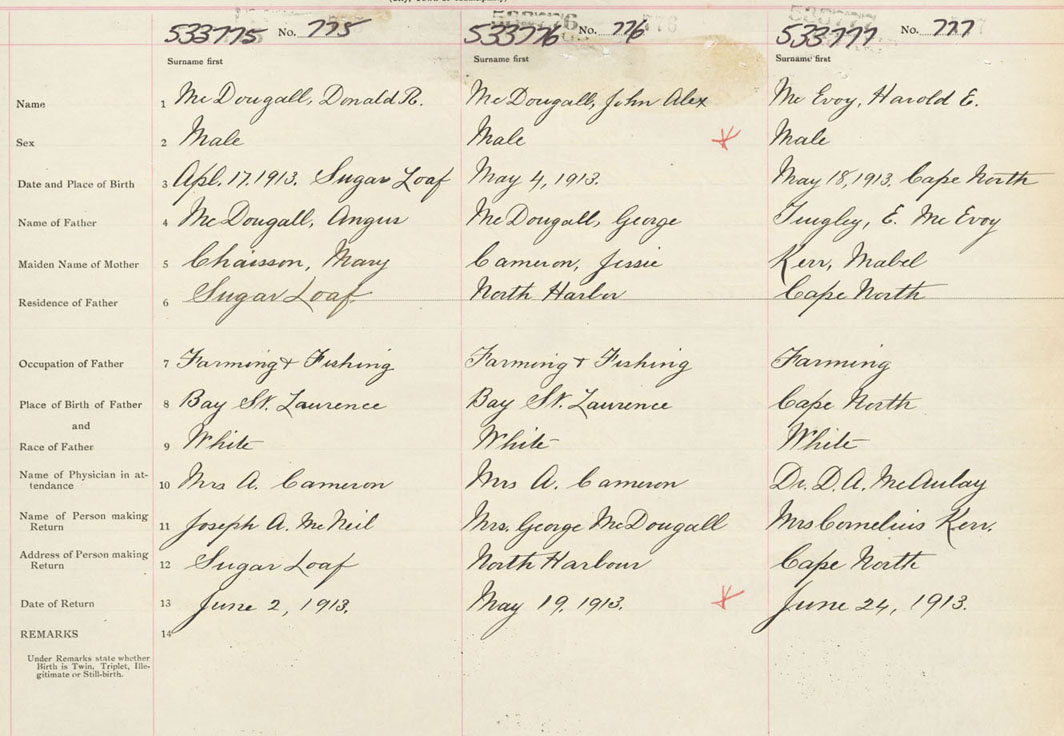 533775 No. 775 533776 No. 776 533777 No. 777
Surname first Surname first Surname first
Name 1 McDougall, Donald R. McDougall, John Alex McEvoy, Harold E.
Sex 2 Male Male Male
Date and Place of Birth 3 Apl. 17. 1913. Sugar Loaf May 4, 1913. May 18, 1913. Cape North
Name of Father 4 McDougall, Angus McDougall, George Tingley, E. McEvoy
Maiden Name of Mother 5 Chaisson, Mary Cameron, Jessie Kerr, Mabel
Residence of Father 6 Sugar Loaf North Harbor Cape North
Occupation of Father 7 Farming + Fishing Farming + Fishing Farming
Place of Birth of Father 8 Bay St. Laurence Bay St. Laurence Cape North
and
Race of Father 9 White White White
Name of Physician in at-
tendance 10 Mrs A. Cameron Mrs A. Cameron Dr. D. A. McAulay
Name of Person making
Return 11 Joseph A. McNeil Mrs. George McDougall Mrs Cornelius Kerr.
Address of Person making
Return 12 Sugar Loaf North Harbour Cape North
Date of Return 13 June 2, 1913. May 19, 1913. June 24, 1913.
REMARKS 14
Under Remarks state whether
Birth is Twin, Triplet, Ille-
gitimate or Still-birth.